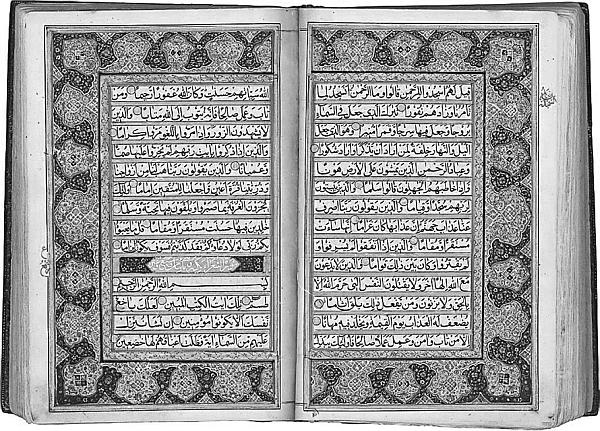 قيل لهم اسجدوا للرحمن قالوا وما الرحمن انسجد لما
تأمرنا وزادهم نفورا تبارك الذي جعل في السماء
بروجا وجعل فيها سراجا وقمرا منيرا وهو الذي جعل
الليل والنهار خلفة لمن أراد أن يذكر أو أراد شكورا
وعباد الرحمن الذين يمشون على الأرض هونا وإذا
خاطبهم الجاهلون قالوا سلاما والذين يبيتون
لربهم سجدا وقياما والذين يقولون ربنا اصرف
عنا عذاب جهنم إن عذابها كان غراما إنها ساءت
مستقرا ومقاما والذين إذا أنفقوا لم يسرفوا ولم
يقتروا وكان بين ذلك قواما والذين لا يدعون
مع الله إلها آخر ولا يقتلون النفس التي حرم الله إلا
بالحق ولا يزنون ومن يفعل ذلك يلق أثاما
يضاعف له العذاب يوم القيمة ويخلد فيه مهانا
إلا من تاب وآمن وعمل عملا صالحا فأولئك يبدل
الله سيئاتهم حسنات وكان الله غفورا رحيما ومن
تاب وعمل صالحا فإنه يتوب إلى الله متابا والذين
لا يشهدون الزور وإذا مروا باللغو مروا كراما
والذين إذا ذكروا بآيات ربهم لم يخروا عليها صما
وعميانا والذين يقولون ربنا هب لنا من أزواجنا
وذرياتنا قرة أعين واجعلنا للمتقين إماما أولئك
يجزون الغرفة بما صبروا ويلقون فيها تحية
وسلاما خالدين فيها حسنت مستقرا ومقاما قل ما يعبأ
بكم ربي لولا دعاؤكم فقد كذبتم فسوف يكون لزاما
بسم الله الرحمن الرحيم
طسم تلك آيات الكتاب المبين لعلك باخع
نفسك ألا يكونوا مؤمنين إن نشأ ننزل عليهم
من السماء آية فظلت أعناقهم لها خاضعين